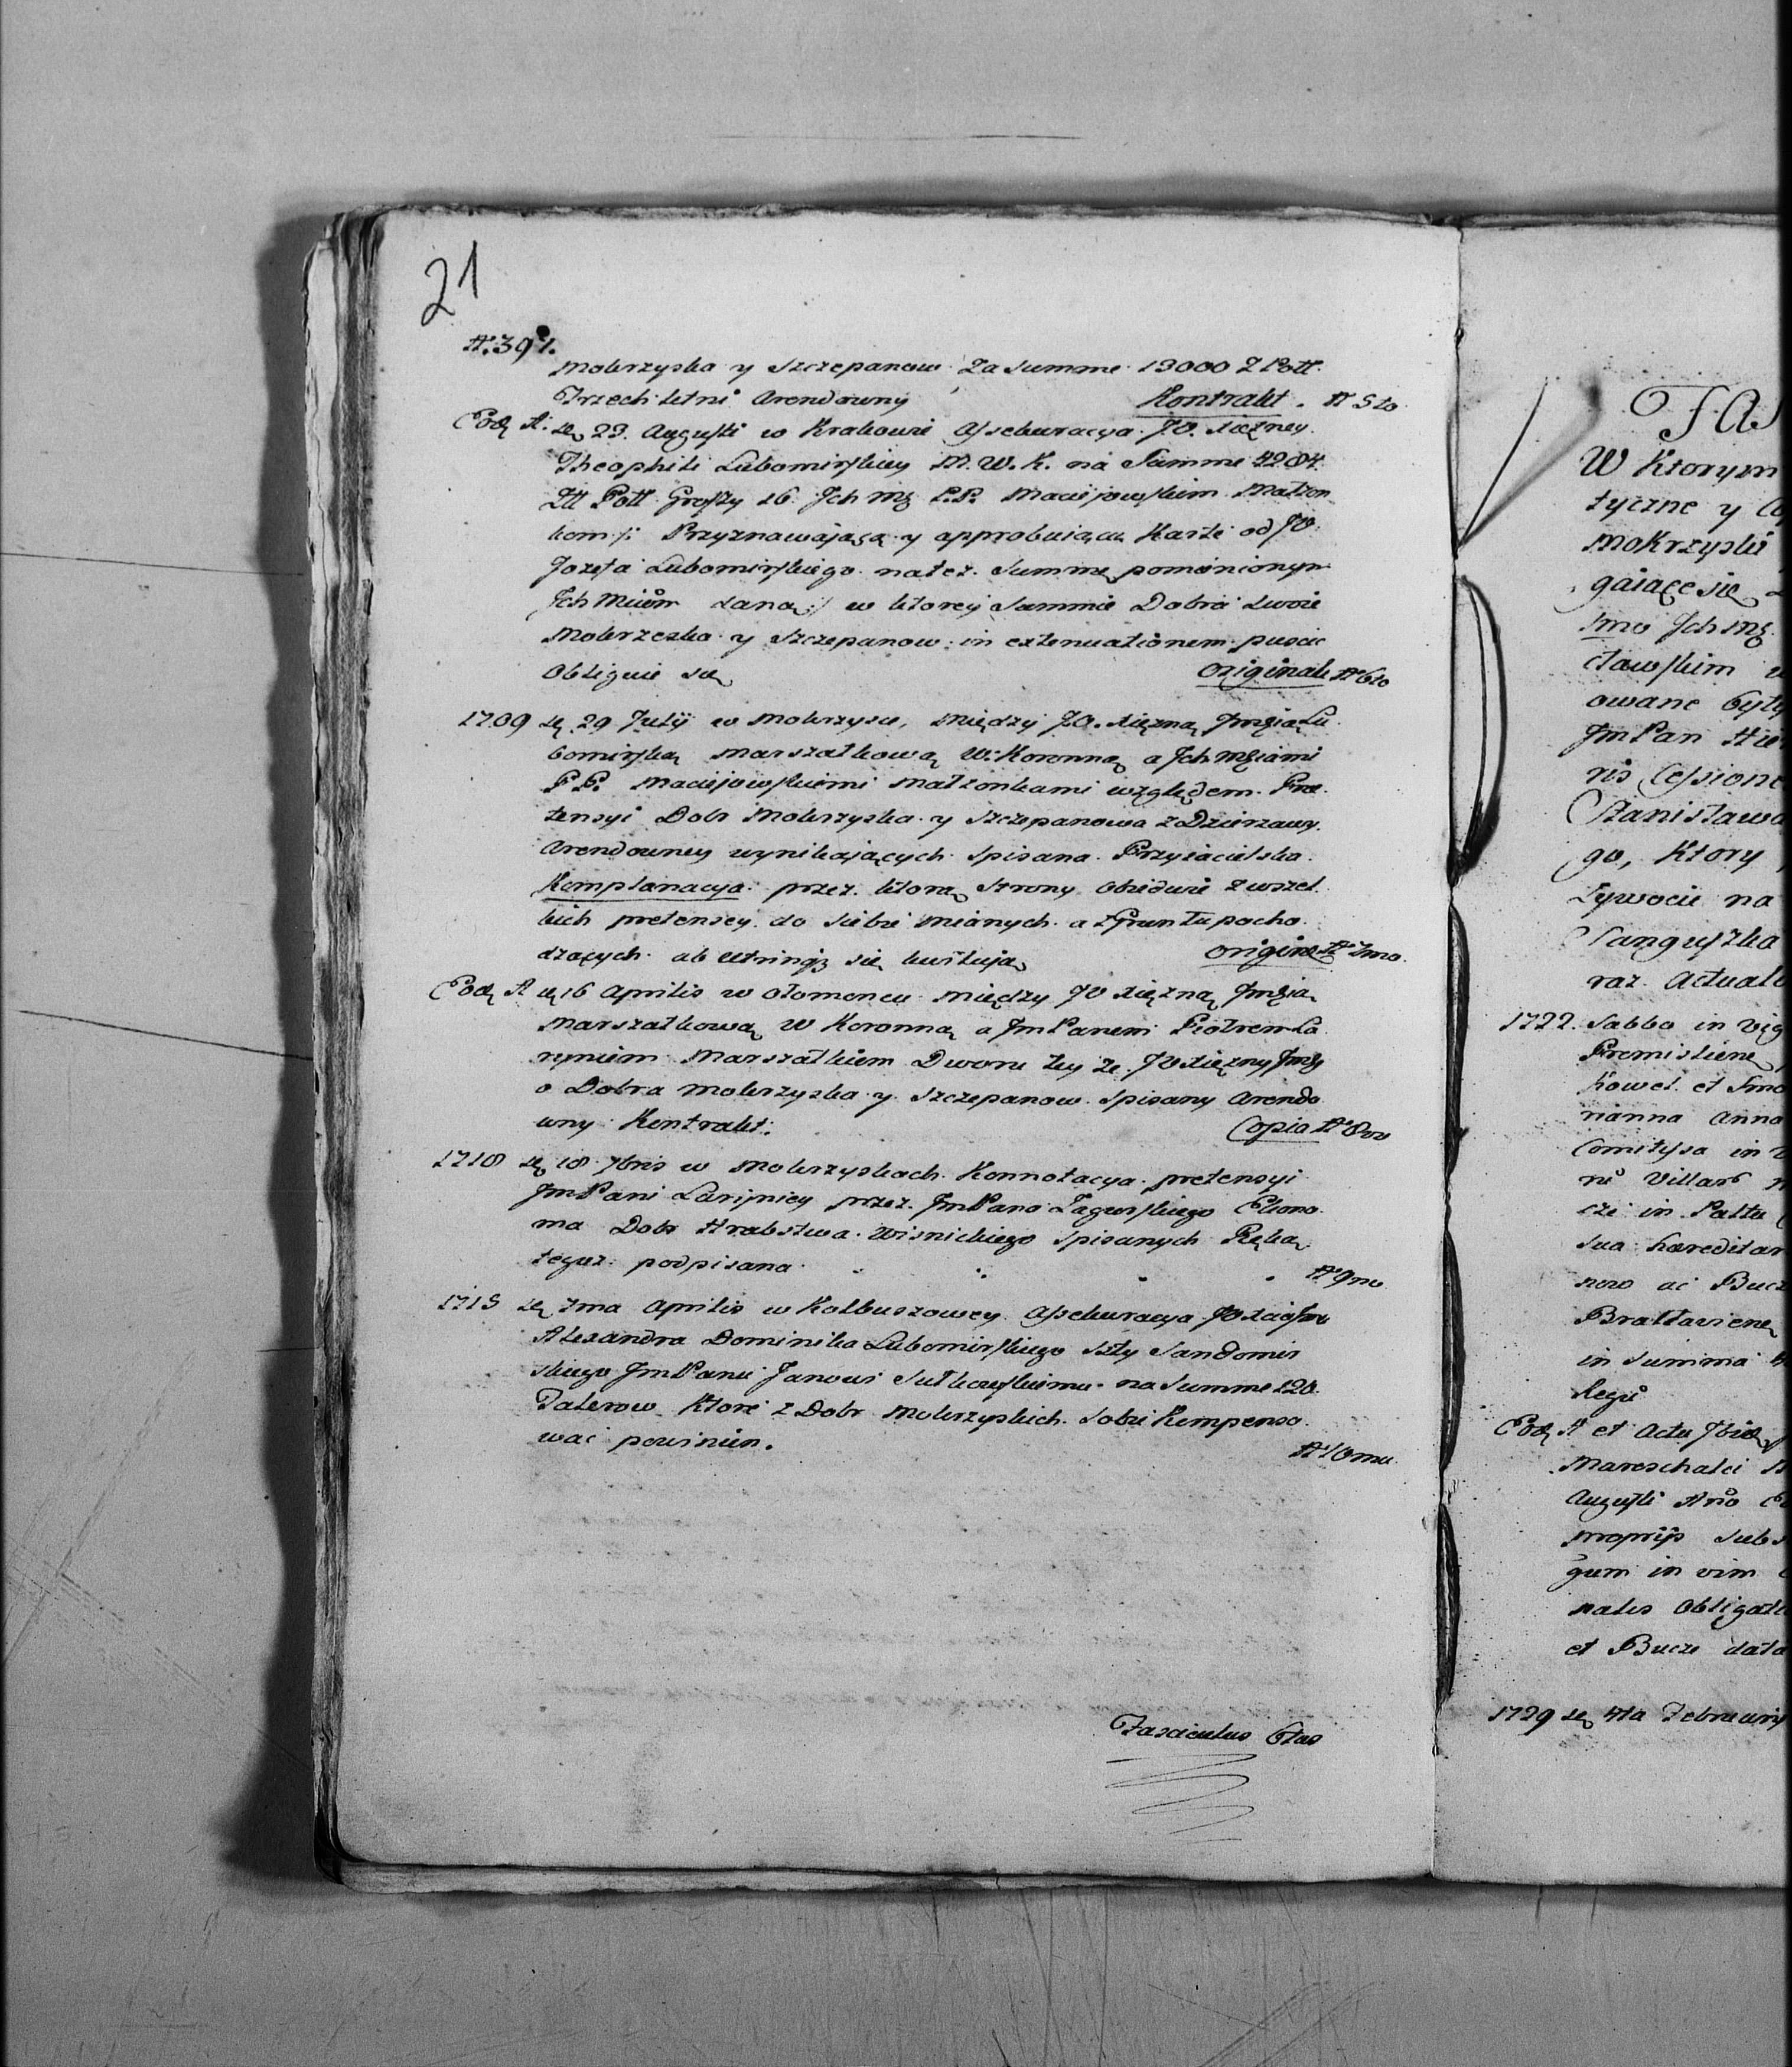 21
N. 391.
Mokrzyska y Szczepanow za Summe 13000 Z Poll.
Trzech letni Arendowny Kontrakt. N 5to
Eod. A. de 23. Augusti w Krakowie Assekuracya JO. Xiężney
Theophili Lubomirskiey M. W. K. na Summe 4204.
Zll Poll Groszy 16. Ich Mę P.P. Maciejowskim Małżon
kom /: Przyznawającą y approbuiącą Karte od JO.
Jozefa Lubomirskiego na też Summe pomienionym
Ich Mciom daną :/ w ktorey Summie Dobra swoie
Mokrzeska y Szczepanow in extenuationem puscic
obliguie się originale N 6to
1709 de 29 Julij w Mokrzysce, między JO. Xiężną Jmęią Lu
bomirską Marszałkową W. Koronną a Ich Męiami
P P. Maciejowskiemi Małżonkami względem Pre
tensyi Dobr Mokrzyska y Szczepanowa z Dzierzawy
Arendowney wynikających spisana Przyiacielska
Komplanacya przez ktorą strony obiedwie z wszel
kich pretensey do siebie mianych a z Gruntu pocho
dzących ab utrinqz się kwituią origine N 7mo.
Eod. A de 16 Aprilis w Ołomoncu między JO Xiężną Jmęią
Marszałkową W Koronną a Jm Panem Piotrem La
ryniem Marszałkiem Dworu tey że JO Xiężny Jmę
o Dobra Mokrzyska y Szczepanow spisany Arendo
wny Kontrakt. Copia N 8vo
1710 de 10 7bris w Mokrzyskach Konnotacya pretensyi
Jm Pani Lariniey przez Jm Pana Zagurskiego Ekono
ma Dobr Hrabstwa Wisnickiego spisanych Ręką
teguz podpisana N 9no
1715 de 7ma Aprilis w Kolbuszowey Assekuracya JO Xięcia
Alexandra Dominika Lubomirskiego Stty Sandomir
skiego Jm Panu Janowi Sułkowskiemu na Summe 120.
Talerow Ktore z Dobr Mokrzyskich sobie Kompenso
wac powinien. N 10mo
Fasciculus 6tus
FAS
W Ktorym
tyczne y
Mokrzyski
gaiące się
Imo Ich Mę
cławskim
owane były
Jm Pan
ris Cessione
Stanisława
go, Ktory
Zywocie na
Sanguszka
raz Actual
1722. Sabbo in Vig
Premisliene
Kowel. et Smo
rianna Anna
Comitissa in
rū Villar
cze in Palatu
sua haereditar
now ac Bucz
Bratlaviene
in Summa
Regū
Eod. A et Actu
Mareschalci
Augusti Ano
proprijs subs
gum in vim
nales Obligat
et Bucze data
1729 de 4ta Februarij